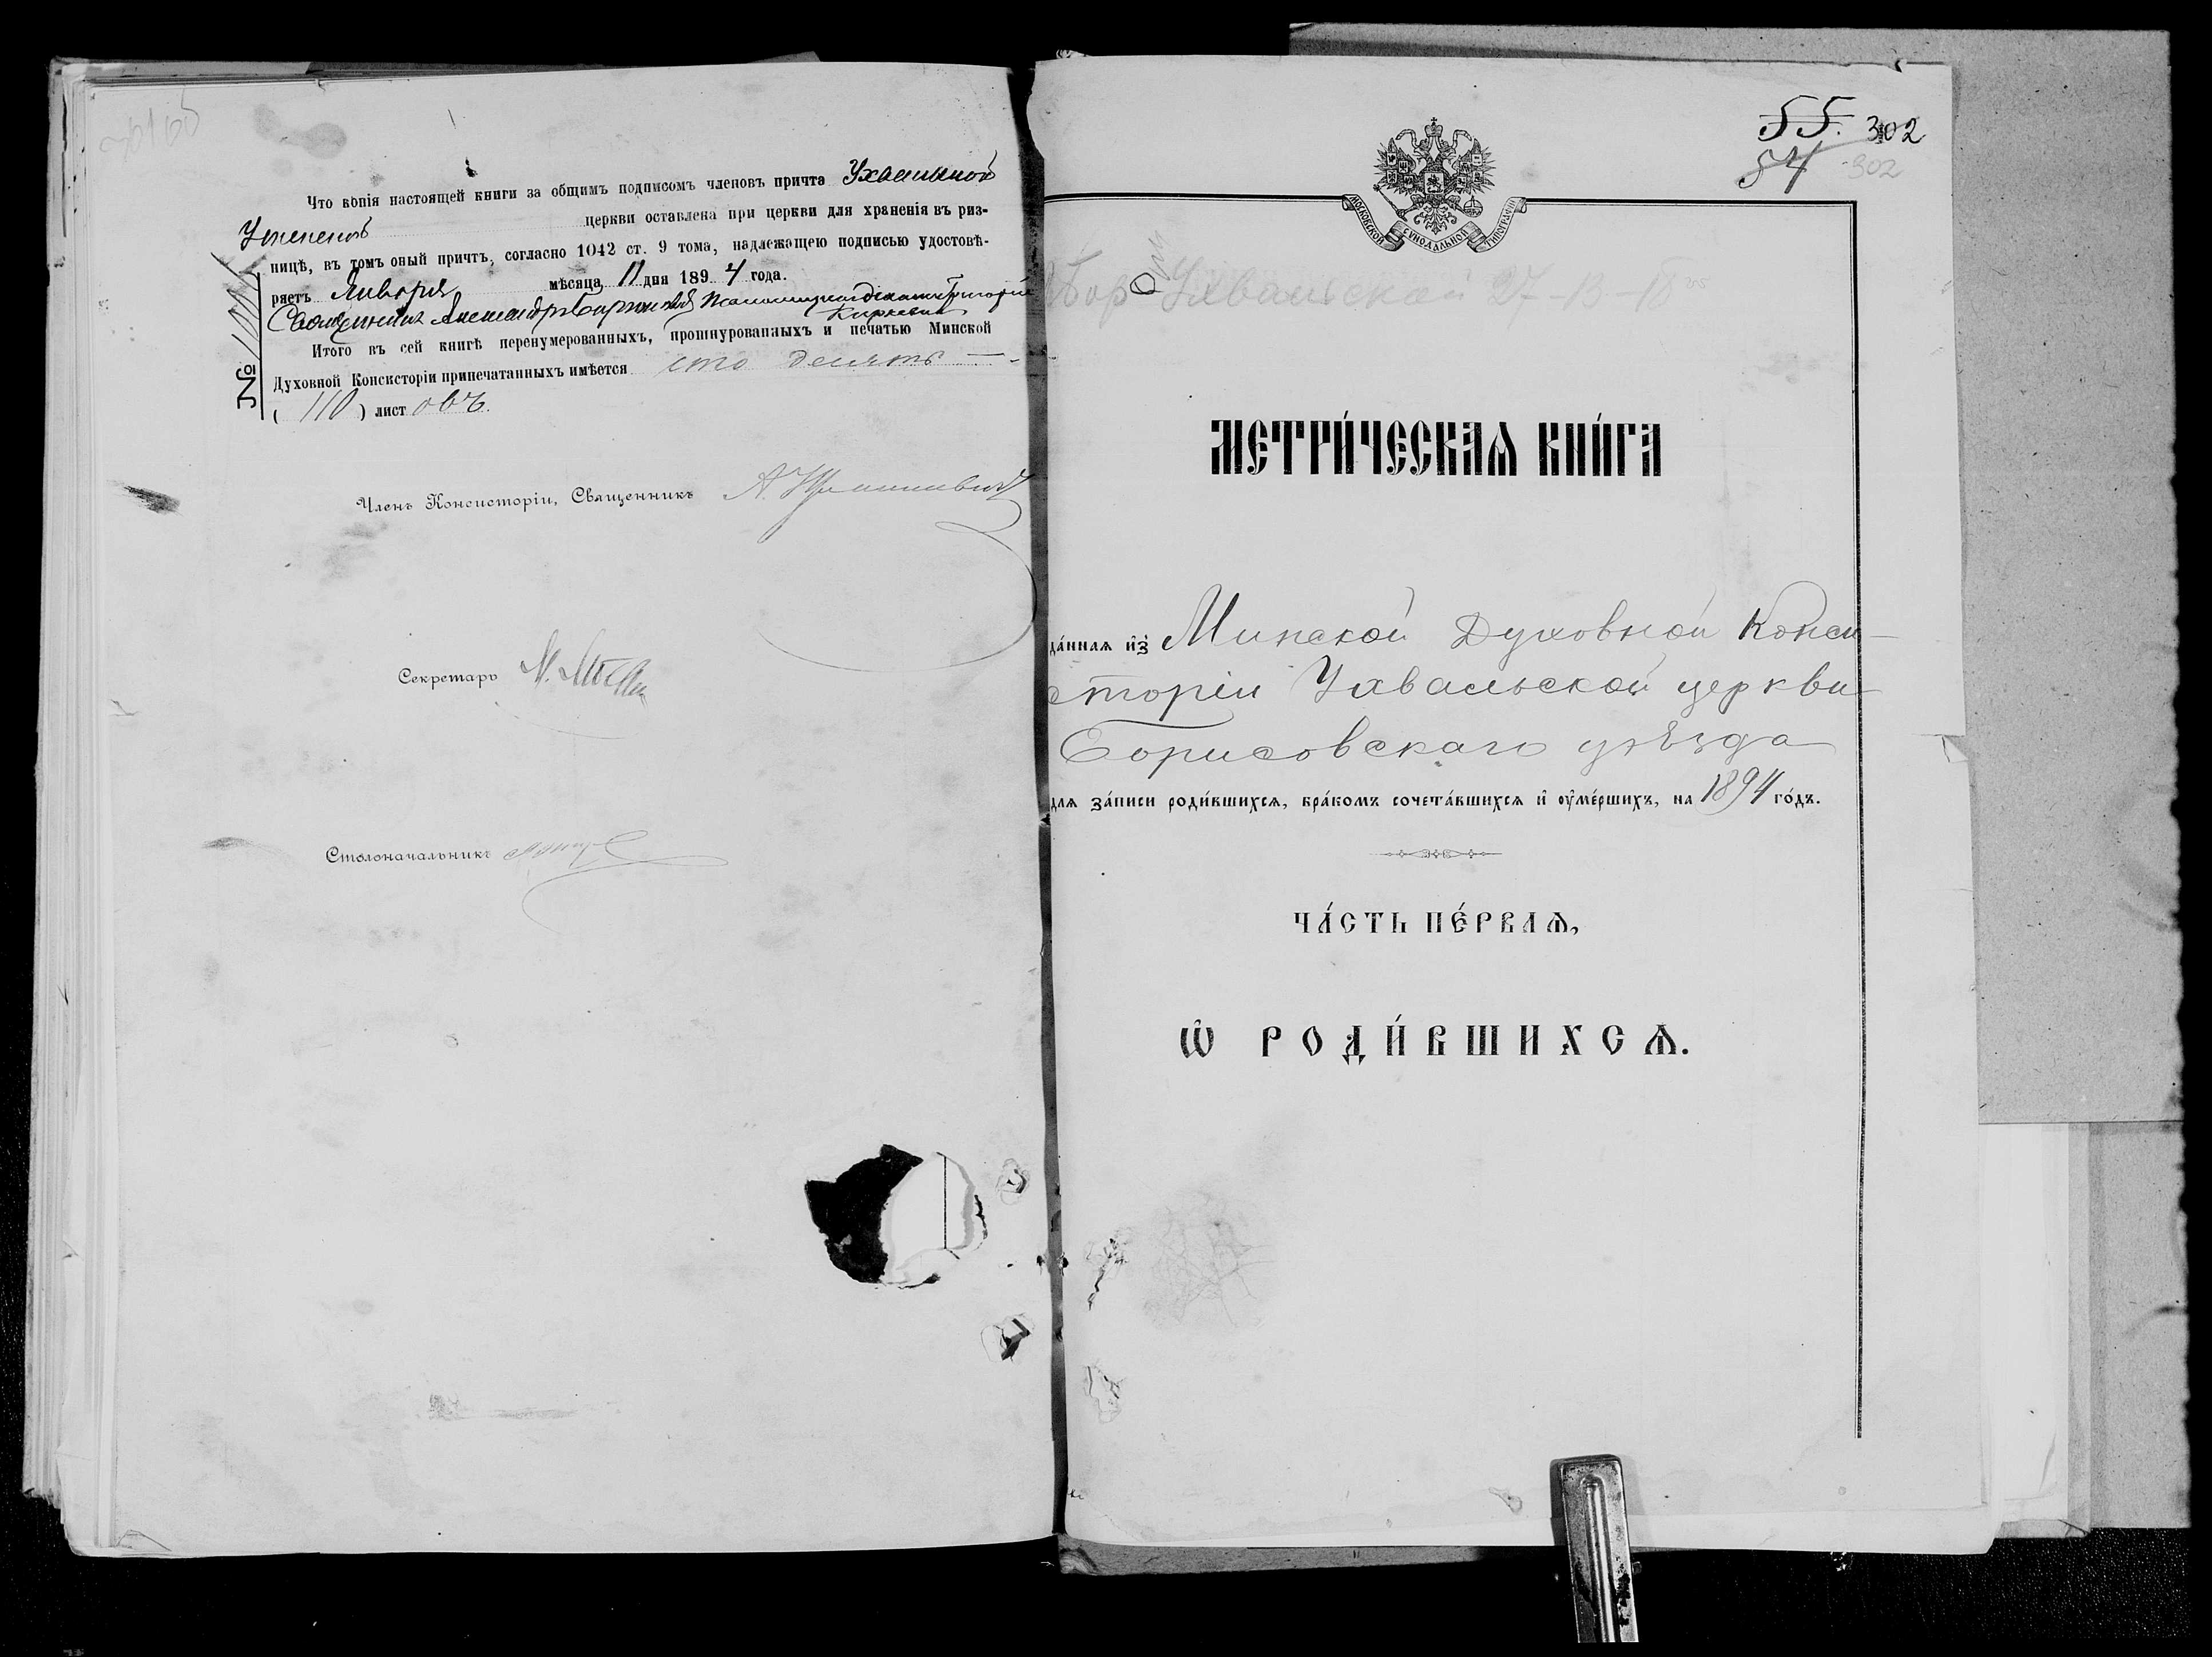 Что копія настоящей книги за общимъ подписомъ членовъ причта
церкви оставлена при церкви для храненія въ риз-
ницѣ, въ томъ оный причтъ, согласно 1042 ст. 9 тома, надлежащею подписью удостовѣ-
ряетъ Января мѣсяца 11 дня 1894 года.
Священникъ Александръ
Итого въ сей книгѣ перенумерованныхъ, прошнурованныхъ и печатью Минской
Духовной Консисторіи припечатанныхъ имѣется сто десять
(110) листовъ.
№
Членъ Консисторіи, Священникъ А.
Секретарь М.
Столоначальникъ
55. 302
54 302
МОСКОВСКОЙ СѴНОДАЛЬНОЙ ТИПОГРАФІИ
Бор Ухвальской 27-13-
МЕТРИ́ЧЕСКАѦ КНИ́ГА
да́ннаѧ и҆з̾ Минской Духовной Конси-
сторіи Ухвальской церкви
Борисовскаго уѣзда
для за́писи роди́вшихсѧ, бра́комъ сочета́вшихсѧ и҆ ᲂу҆ме́ршихъ, на 1894 го́дъ.
ЧА́СТЬ ПЕ́РВАѦ,
Ѽ РОДИ́ВШИХСѦ.